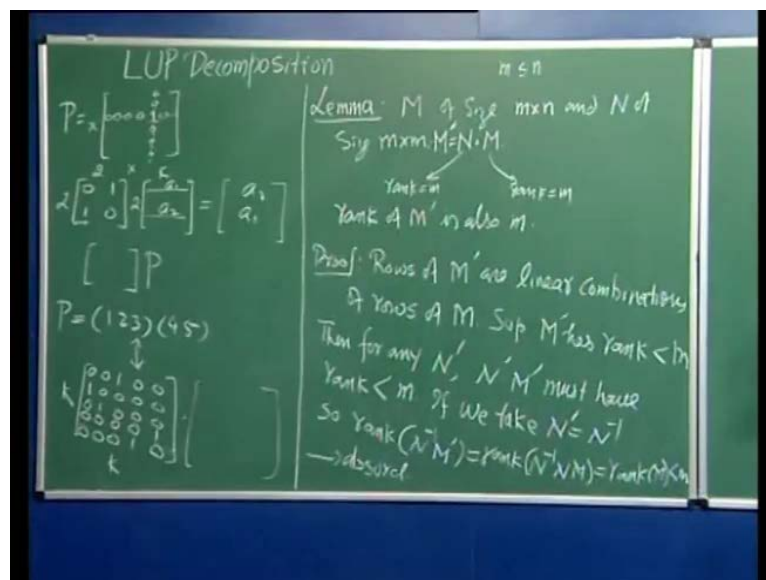 LUP Decomposition
m ≤ n
P =
0 0 0 0 1 0
2 × k
2 [0 1 2 [a₁ = [a₂
1 0] a₂] a₁]
[ ] P
P = (1 2 3) (4 5)
0 0 1 0 0
1 0 0 0 0
0 1 0 0 0
0 0 0 0 1
0 0 0 1 0
k
k
Lemma: M of size m×n and N of
size m×m. M' = N·M
rank = m rank = m
rank of M' is also m.
Proof: Rows of M' are linear combinations
of rows of M. Sup M' has rank < m
Then for any N', N'M' must have
rank < m. If we take N' = N⁻¹
so rank(N⁻¹M') = rank(N⁻¹NM) = rank(M) < m
→ absurd.